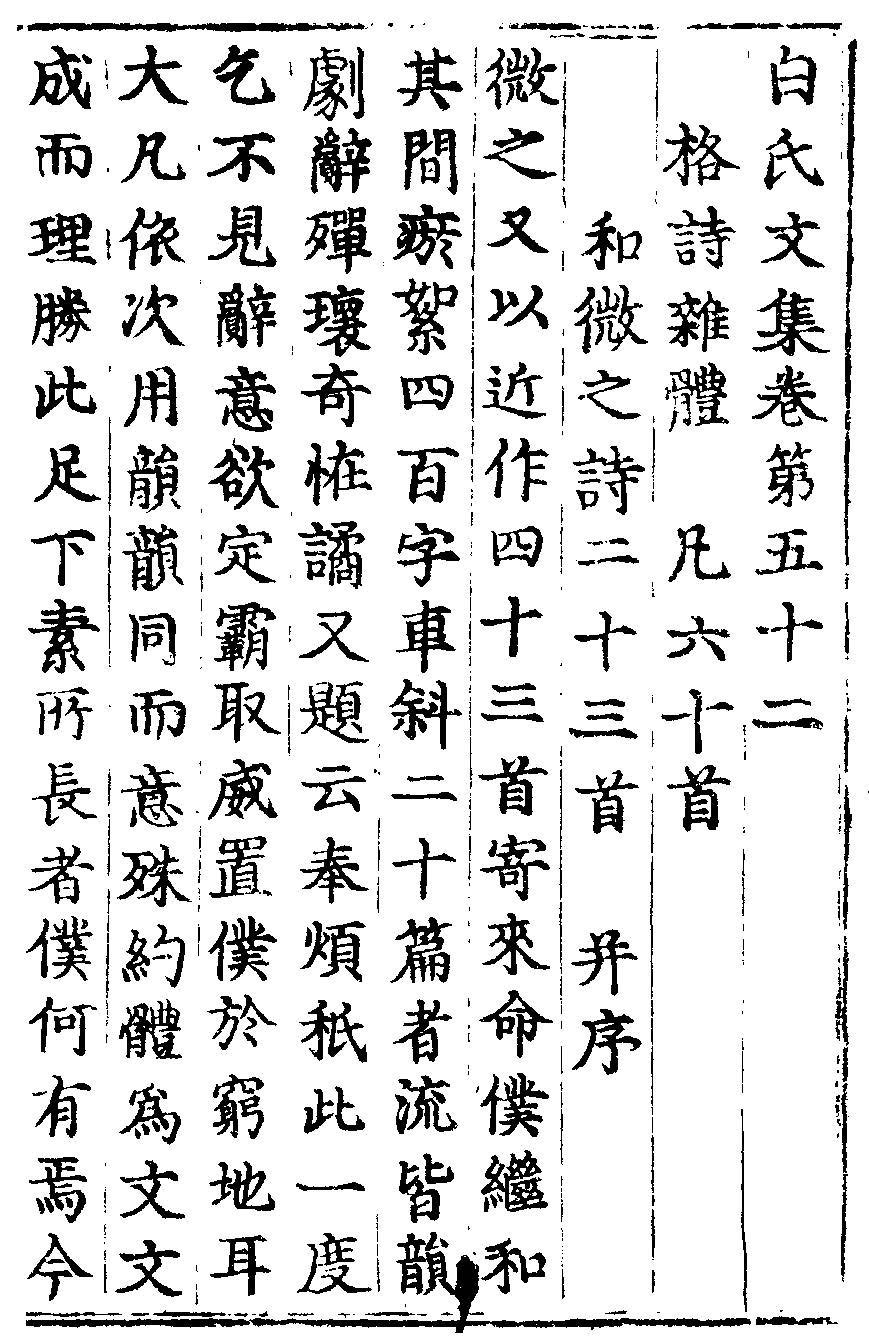 白氏文集卷第五十二
格詩雜體　凡六十首
和微之詩二十三首　并序
微之又以近作四十三首寄來命僕繼和
其間瘀絮四百字車斜二十篇者流皆韻
劇辭殫瓌奇恠譎又題云奉煩秖此一度
乞不見辭意欲定霸取威置僕於窮地耳
大凡依次用韻韻同而意殊約體爲文文
成而理勝此足下素所長者僕何有焉今